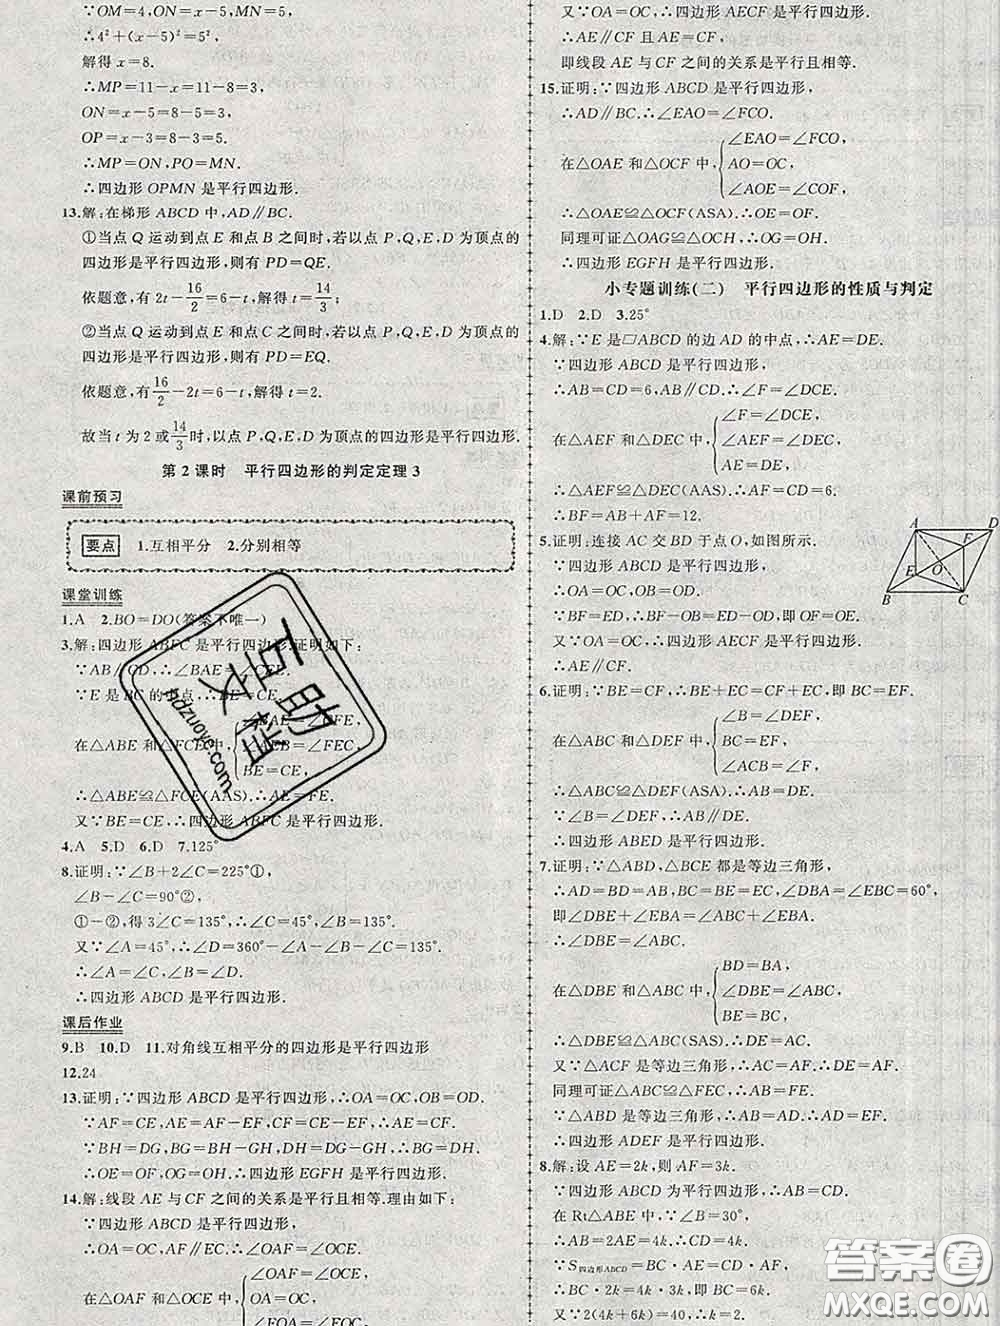 ∵OM=4,ON=x-5,MN=5,
∴4²+(x-5)²=5²,
解得 x=8.
∴MP=11-x=11-8=3,
ON=x-5=8-5=3,
OP=x-3=8-3=5.
∴MP=ON,PO=MN.
∴四边形 OPMN 是平行四边形.
13.解:在梯形 ABCD 中,AD∥BC.
①当点 Q 运动到点 E 和点 B 之间时,若以点 P,Q,E,D 为顶点的
四边形是平行四边形,则有 PD=QE.
依题意,有 2t-16/2=6-t,解得 t=14/3;
②当点 Q 运动到点 E 和点 C 之间时,若以点 P,Q,E,D 为顶点的
四边形是平行四边形,则有 PD=EQ.
依题意,有16/2-2t=6-t,解得 t=2.
故当 t 为 2 或14/3时,以点 P,Q,E,D 为顶点的四边形是平行四边形.
第 2 课时 平行四边形的判定定理 3
课前预习
要点 1.互相平分 2.分别相等
课堂训练
1.A 2.BO=DO(答案不唯一)
3.解:四边形 ABFC 是平行四边形.证明如下:
∵AB∥CD,∴∠BAE=∠CFE.
∵E 是 BC 的中点,∴BE=CE.
∠BAE=∠CFE,
在△ABE 和△FCE 中, ∠AEB=∠FEC,
BE=CE,
∴△ABE≌△FCE(AAS).∴AE=FE.
又∵BE=CE,∴四边形 ABFC 是平行四边形.
4.A 5.D 6.D 7.125°
8.证明:∵∠B+2∠C=225°①,
∠B-∠C=90°②,
①-②,得 3∠C=135°,∴∠C=45°,∠B=135°.
又∵∠A=45°,∴∠D=360°-∠A-∠B-∠C=135°.
∴∠A=∠C,∠B=∠D.
∴四边形 ABCD 是平行四边形.
课后作业
9.B 10.D 11.对角线互相平分的四边形是平行四边形
12.24
13.证明:∵四边形 ABCD 是平行四边形,∴OA=OC,OB=OD.
∵AF=CE,AF-EF=CE-EF,∴AE=CF.
∵BH=DG,BG=BH-GH,DH=DG-GH,∴BG=DH.
∴OE=OF,OG=OH,∴四边形 EGFH 是平行四边形.
14.解:线段 AE 与 CF 之间的关系是平行且相等.理由如下:
∵四边形 ABCD 是平行四边形,
∴OA=OC,AF∥EC.∴∠OAF=∠OCE.
∠OAF=∠OCE,
在△OAF 和△OCE 中, OA=OC,
∠FOA=∠EOC,
又∵OA=OC,∴四边形 AECF 是平行四边形.
∴AE∥CF 且 AE=CF,
即线段 AE 与 CF 之间的关系是平行且相等.
15.证明:∵四边形 ABCD 是平行四边形,
∴AD∥BC.∴∠EAO=∠FCO.
∠EAO=∠FCO,
在△OAE 和△OCF 中, AO=OC,
∠AOE=∠COF,
∴△OAE≌△OCF(ASA).∴OE=OF.
同理可证△OAG≌△OCH,∴OG=OH.
∴四边形 EGFH 是平行四边形.
小专题训练(二) 平行四边形的性质与判定
1.D 2.D 3.25°
4.解:∵E 是□ABCD 的边 AD 的中点,∴AE=DE.
∵四边形 ABCD 是平行四边形,
∴AB=CD=6,AB∥CD.∴∠F=∠DCE.
∠F=∠DCE,
在△AEF 和△DEC 中, ∠AEF=∠DEC,
AE=DE,
∴△AEF≌△DEC(AAS).∴AF=CD=6.
∴BF=AB+AF=12.
5.证明:连接 AC 交 BD 于点 O,如图所示.
∵四边形 ABCD 是平行四边形,
∴OA=OC,OB=OD.
∵BF=ED,∴BF-OB=ED-OD,即 OF=OE.
又∵OA=OC,∴四边形 AECF 是平行四边形,
∴AE∥CF.
A D F E O B C
6.证明:∵BE=CF,∴BE+EC=CF+EC,即 BC=EF.
∠B=∠DEF,
在△ABC 和△DEF 中, BC=EF,
∠ACB=∠F,
∴△ABC≌△DEF(ASA).∴AB=DE.
又∵∠B=∠DEF,∴AB∥DE.
∴四边形 ABED 是平行四边形.
7.证明:∵△ABD,△BCE 都是等边三角形,
∴AD=BD=BA,BC=BE=EC,∠DBA=∠EBC=60°,
即∠DBE+∠EBA=∠ABC+∠EBA.
∴∠DBE=∠ABC.
BD=BA,
在△DBE 和△ABC 中, ∠DBE=∠ABC,
BE=BC,
∴△DBE≌△ABC(SAS).∴DE=AC.
又∵△ACF 是等边三角形,∴AC=AF=CF.
同理可证△ABC≌△FEC,∴AB=FE.
∵△ABD 是等边三角形,∴AB=AD.∴AD=EF.
∴四边形 ADEF 是平行四边形.
8.解:设 AE=2k,则 AF=3k.
∵四边形 ABCD 为平行四边形,
在 Rt△ABE 中,∵∠B=30°,
∴AB=2AE=4k,∴CD=4k.
∵S四边形ABCD=BC·AE=CD·AF,
∴BC·2k=4k·3k,即 BC=6k.
又∵2(4k+6k)=40,∴k=2.
互助文档
hdzuoye.com
答案圈
MXQE.COM